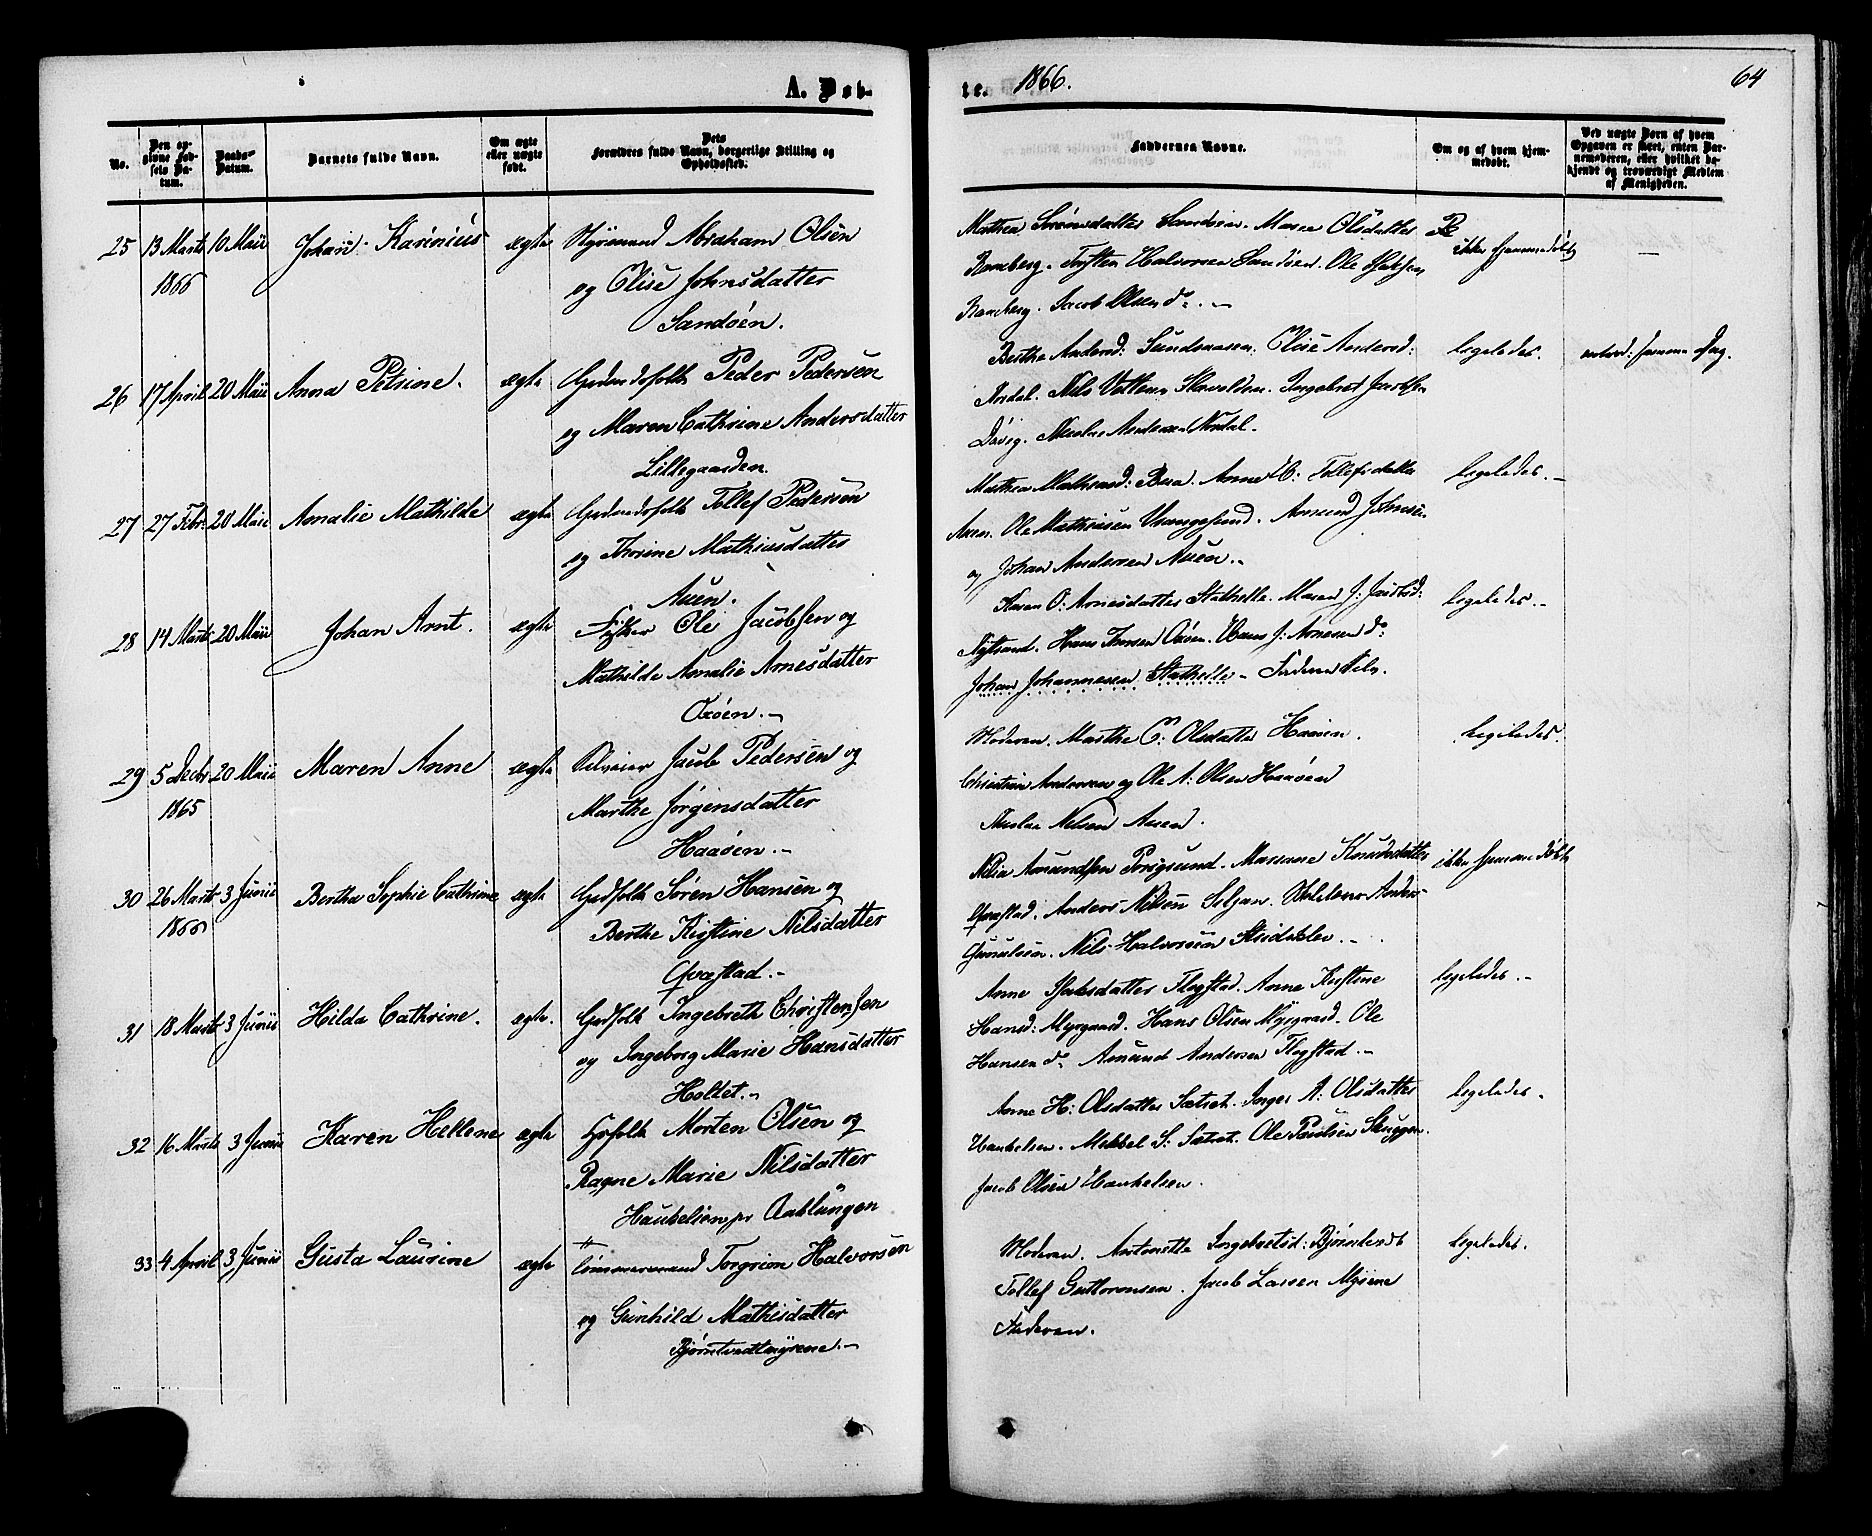 A. Døb-
te. 1866.
64
No.
Den opgivne Fødsels Datum.
Daabs-Datum.
Barnets fulde Navn.
Om ægte eller uægte født.
Dets Forældres fulde Navn, borgerlige Stilling og Opholdssted.
Faddernes Navne.
Om og af hvem hjemmedøbt.
Ved uægte Børn af hvem Opgaven er skeet, enten Barnemoderen, eller hvilket bekjendt og troværdigt Medlem af Menigheden.
25 13 Marts 10 Maii Johan Karinius ægte Styrmand Abraham Olsen
1866 og Elise Johnsdatter
Sandøen.
Mathea Sørensdatter Sandøen. Maren Olsdatter
Ramberg. Torsten Halvorsen Sandøen. Ole Isaksen
Ramberg. Jacob Olsen do. –
ikke hjemmedøbt
26 17 April 20 Maii Anna Petrine. ægte Gaardmdsfolk Peder Pedersen
og Maren Cathrine Andersdatter
Lillegaarden.
Berthe Andersd: Sundsaasen. Elise Andersd:
Ardal. Nils Vettesen Skavoldsen. Ingebret Jacobsen
Døvig. Nicolai Andersen
ligeledes.
27 27 Febr. 20 Maii Amalie Mathilde ægte Gaardmdsfolk Tollef Pedersen
og Thorine Mathiasdatter
Auen.
Mathea Mathiasd: Anne Tollefsdatter
Auen. Ole Mathiasen Amund Johnsen
og Johan Andersen Auen.
ligeledes. –
28 14 Marts 20 Maii Johan Arnt. ægte Fisker Ole Jacobsen og
Mathilde Amalie Arnesdatter
Oxøen. –
Karen O: Arnesdatter Stathelle. Maren J: Jacobsd:
Hans Oxøen. Hans J: Arnesen do.
Johan Johannesen Stathelle – Faderen selv.
ligeledes. –
29 5 Decbr 20 Maii Maren Anne ægte Selveier Jacob Pedersen og
1865 Marthe Jørgensdatter
Haaøen. –
Moderen. Marthe C: Olsdatter Haaøen.
Christian Andersen og Ole A: Olsen Haaøen
Nicolai Nelsen Auen.
ligeledes.
30 26 Marts 3 Junii Berthe Sophie Cathrine ægte Gaardfolk Søren Hansen og
1866 Berthe Kistine Nilsdatter
Qvæstad. –
Nilia Amundsen Mariane Knudsdatter
Qvæstad. Anders Nilsen Seljan.
Nils Halvorsen
ikke hjemmedøbt
31 18 Marts 3 Junii Hilda Cathrine. ægte. Gaardfolk Ingebreth Christensen
og Ingeborg Marie Hansdatter
Holtet. –
Anne Isaksdatter Flogstad. Anne Kistine
Hansd: Myrgaard. Hans Olsen Myrgaard. Ole
Hansen do. Amund Andersen Flogstad. –
ligeledes. –
32 16 Marts 3 Junii Karen Hellene ægte Morten Olsen og
Ragne Marie Nilsdatter
Haukelien pr Ønklungen
Anne H: Olsdatter Sætret. Inger A: Olsdatter
Haukelien. Mekkel S: Sætret. Ole Paulsen Skuggen.
Jacob Olsen Haukelien.
ligeledes.
33 4 April 3 Junii Gusta Laurine ægte Tømmermand Torgrim Halvorsen
og Gunhild Mathisdatter
Bjørntvedtmyrene. –
Moderen. Antonette Ingebretsd: Bjørntvedt
Tollef Guttormsen. Jacob Larsen Myrene
Faderen.
ligeledes.